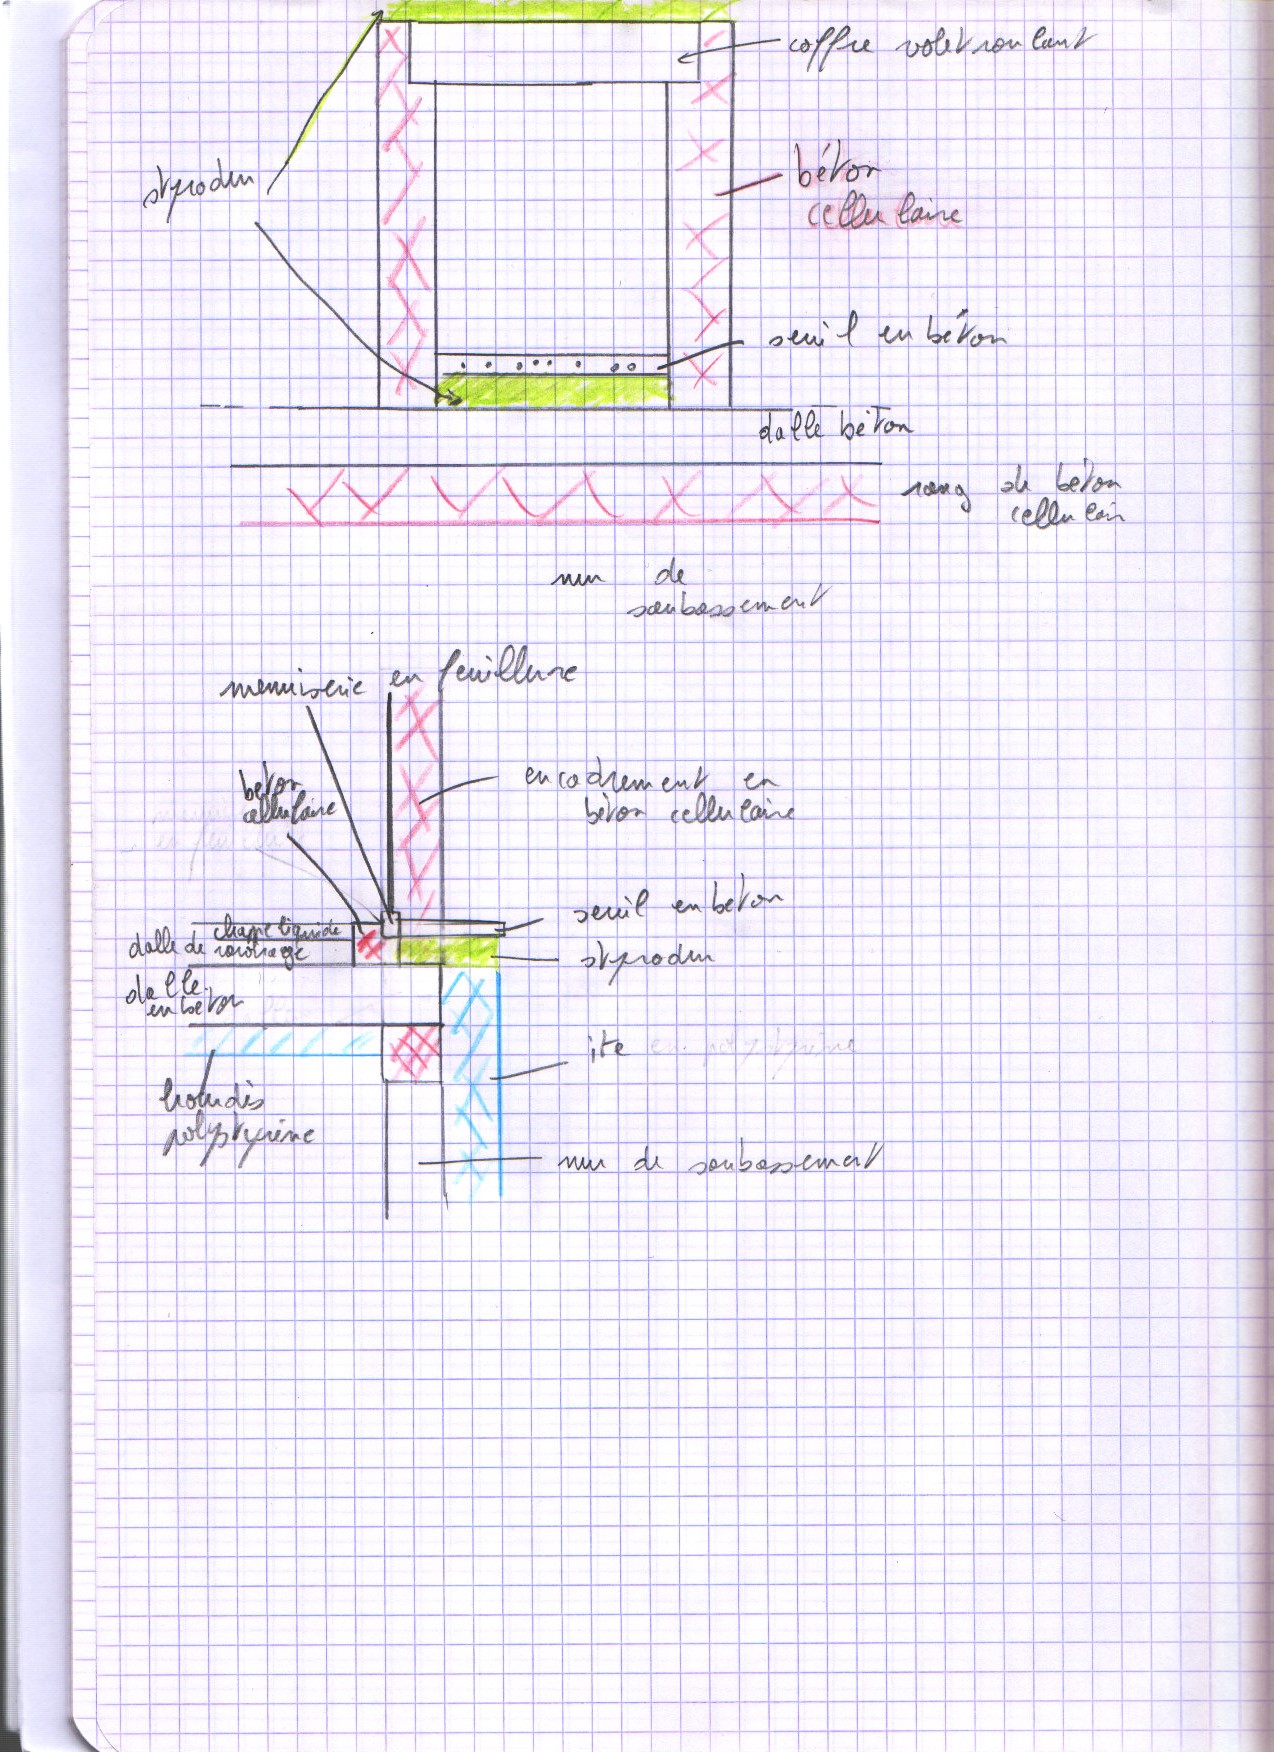 coffre volet roulant
styrodur
béton
cellulaire
seuil en béton
dalle béton
rang de béton
cellulair
mur de
soubassement
menuiserie en feuillure
béton
cellulaire
encadrement en
béton cellulaire
seuil en béton
chape liquide
dalle de ravoirage
styrodur
dalle
en béton
ite en polystyrène
hourdis
polystyrène
mur de soubassement